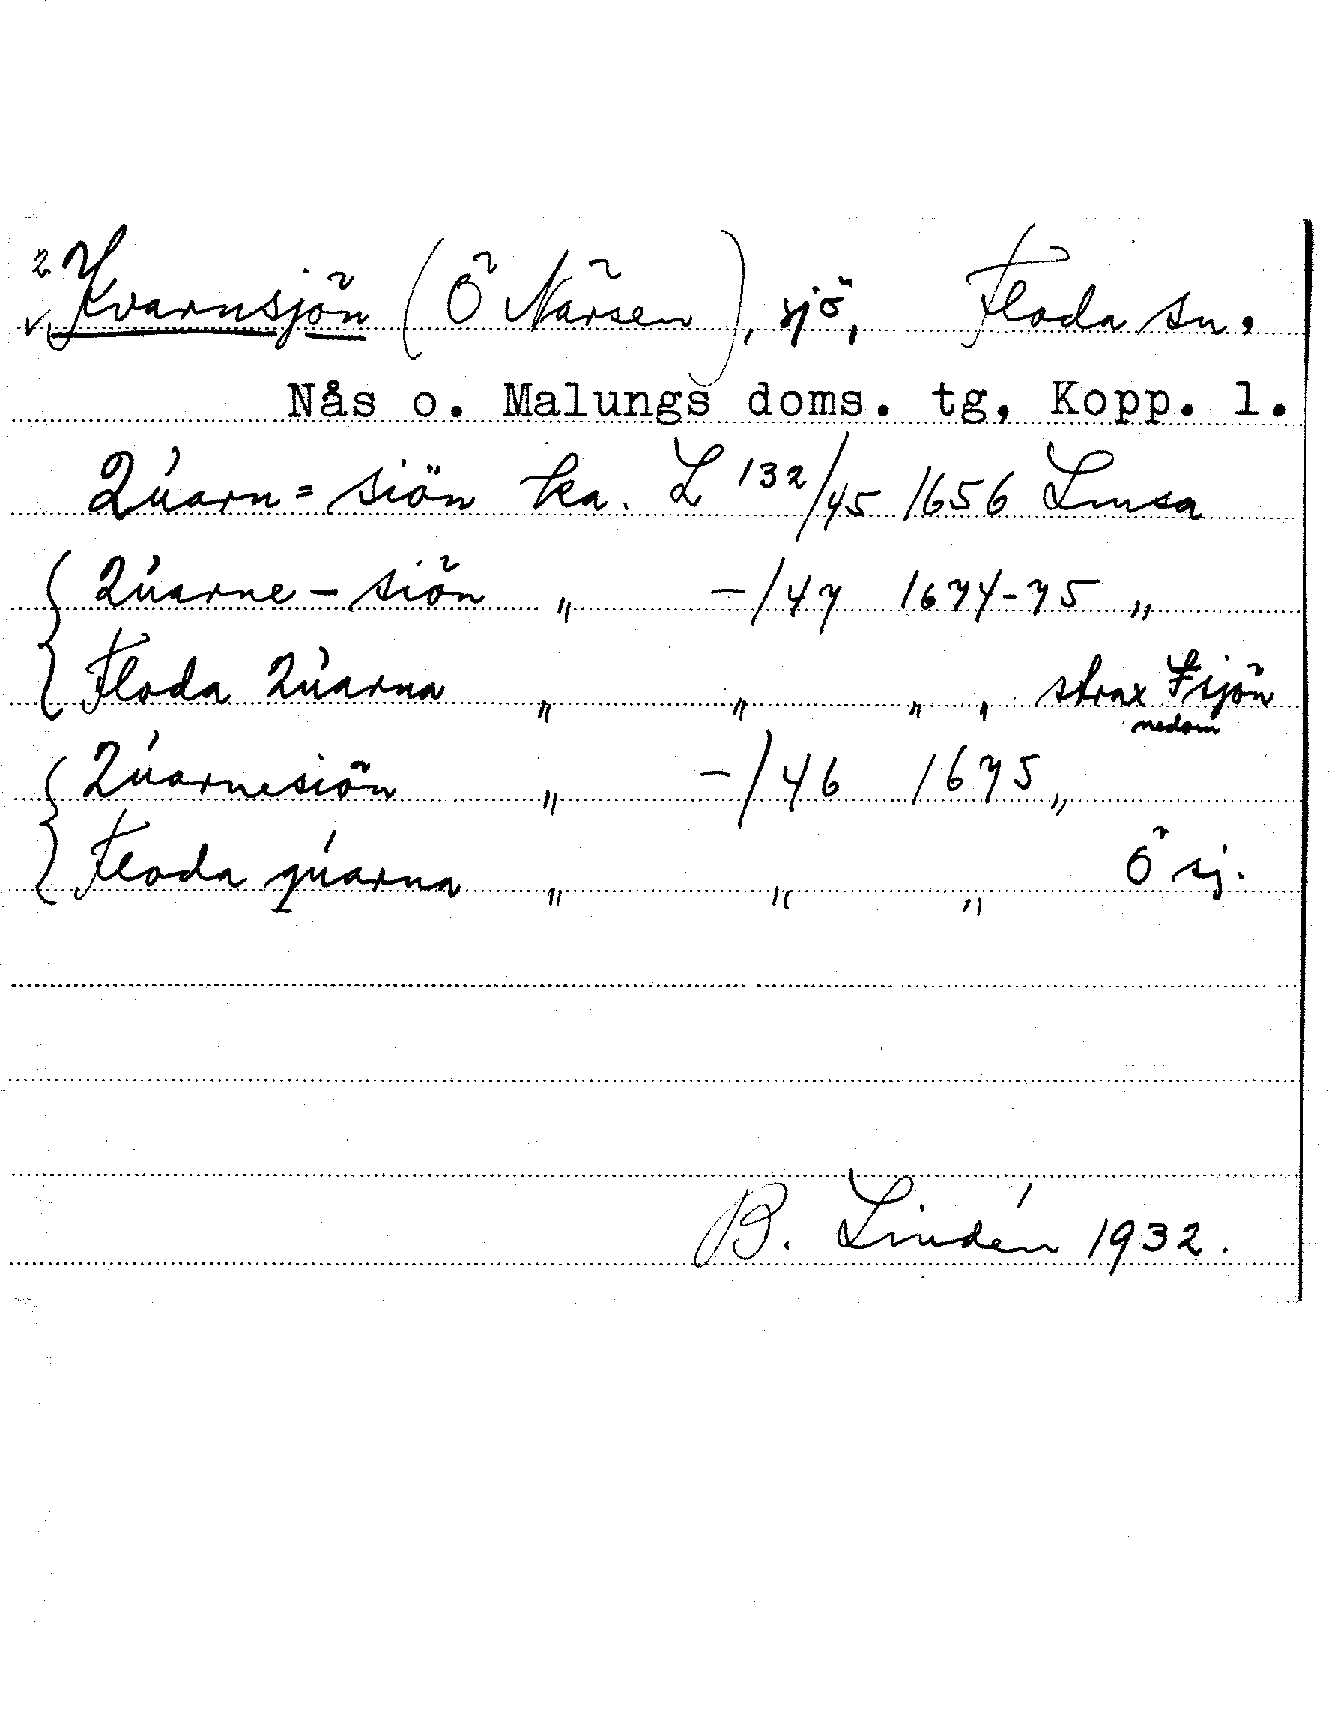 2 Kvarnsjön (Ö Närsen), sjö, Floda sn.
Nås o. Malungs doms. tg, Kopp. l.
Qúarn=siön ka. L 132/45 1656 Lmsa
{ Qúarne-siön " -/47 1674-75 "
Floda Qúarna " " " " strax Fsjön
nedom
{ Qúarnesiön " -/46 1675 "
Floda qúarna " " " Ö sj.
B. Lindén 1932.